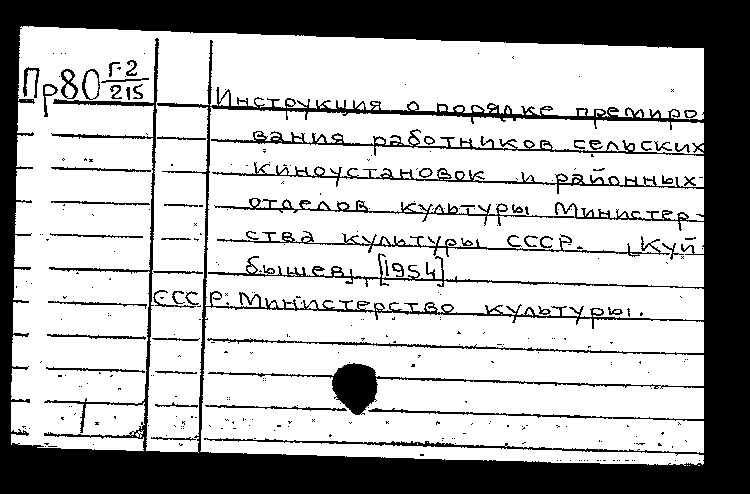 Пр80 Г-2/215
Инструкция о порядке премиро-
вания работников сельских
киноустановок и районных
отделов культуры Министер-
ства культуры СССР. [Куй-
бышев], [1954].
СССР. Министерство культуры.